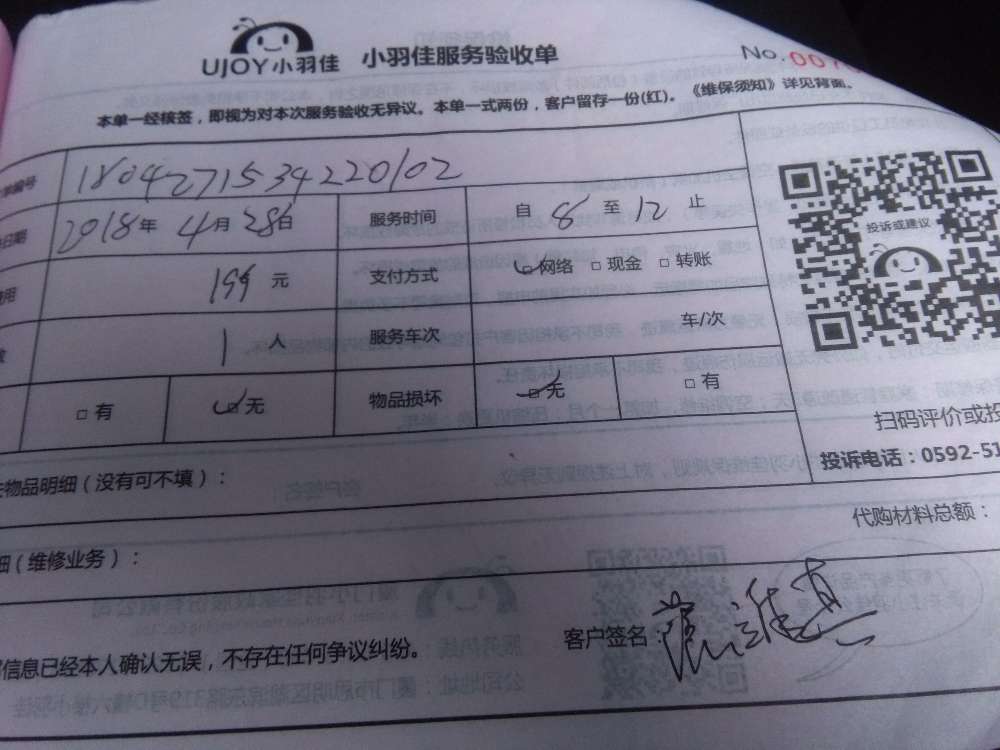 UJOY小羽佳 小羽佳服务验收单
No. 007
本单一经核签，即视为对本次服务验收无异议。本单一式两份，客户留存一份(红)。《维保须知》详见背面。
编号 1804271534220102
日期 2018年 4月 28日 服务时间 自 8 至 12 止
用 199 元 支付方式 网络 □ 现金 □ 转账
1 人 服务车次 车/次
□ 有 无 物品损坏 无 □ 有
投诉或建议
扫码评价或投
投诉电话：0592-51
物品明细（没有可不填）：
代购材料总额：
细（维修业务）：
信息已经本人确认无误，不存在任何争议纠纷。
客户签名：